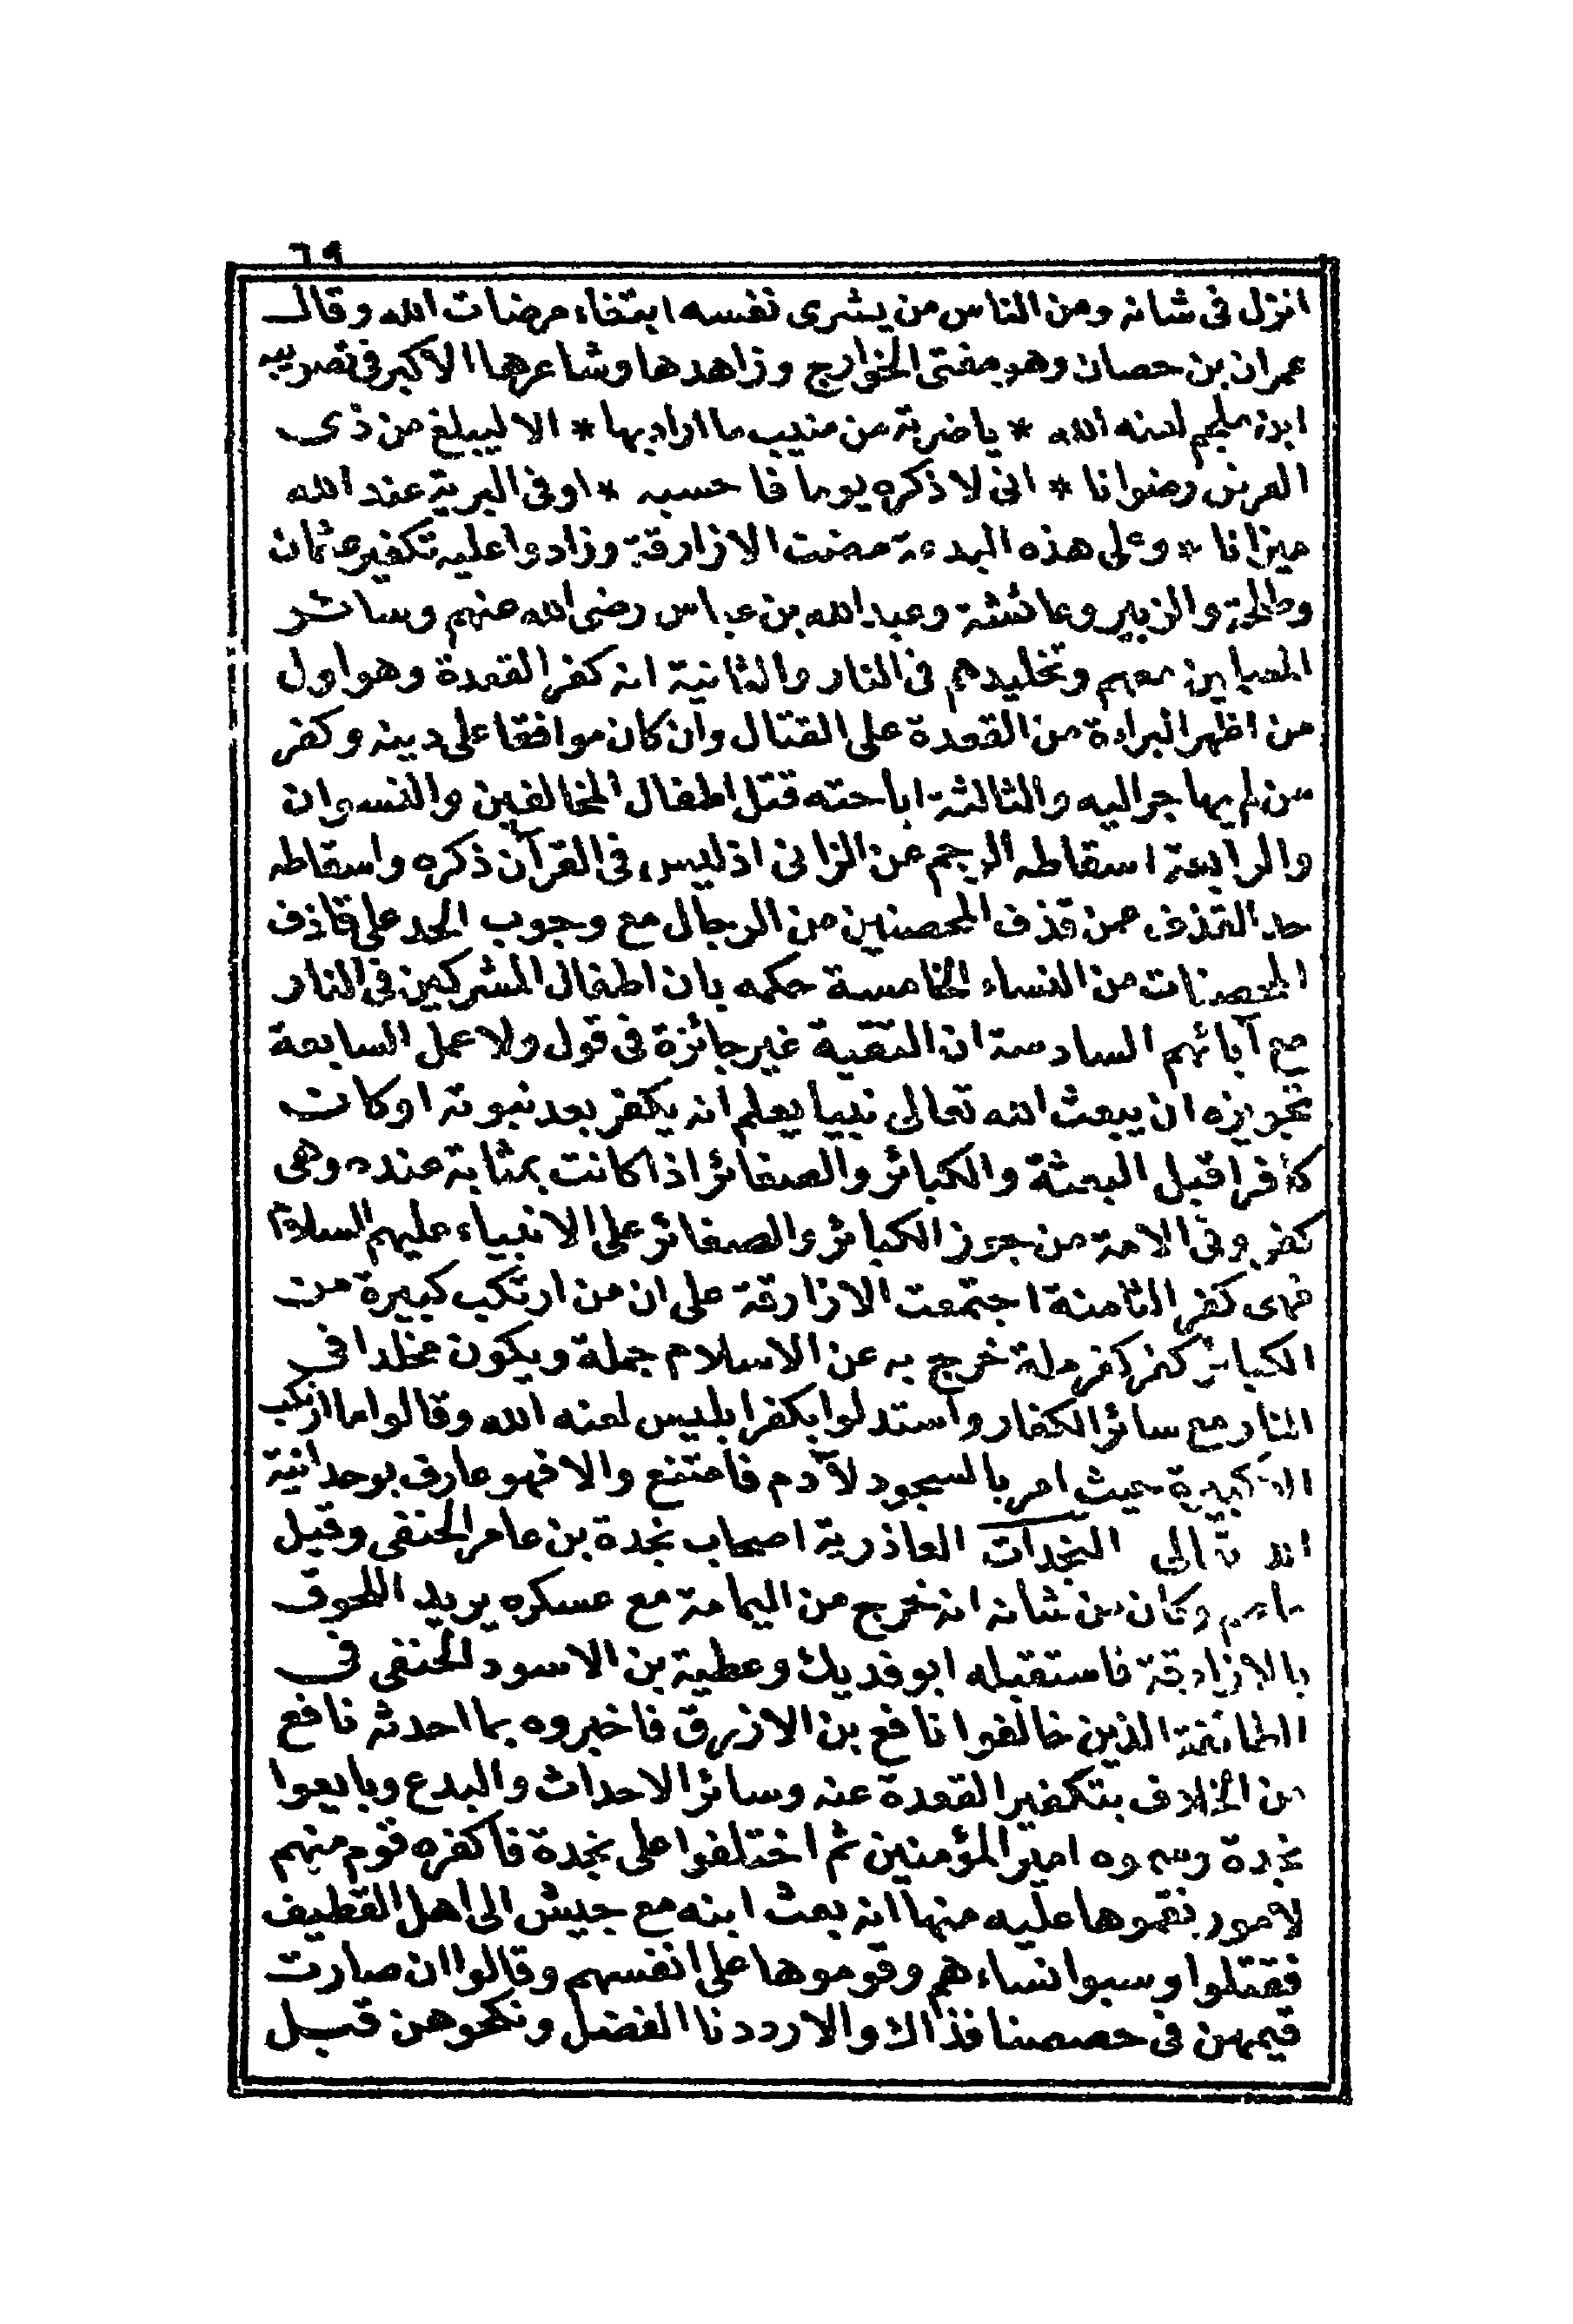 ٦٩
انزل فى شانه ومن الناس من يشرى نفسه ابتغاء مرضات الله وقال
عمران بن حصان وهو مفتى الخوارج وزاهدها وشاعرها الاكبر فى تصويبه
ابن ملجم لعنه الله * ياضربة من منيب ما اراد بها * الا ليبلغ من ذى
العرش رضوانا * انى لاذكره يوما فاحسبه * اوفى البرية عند الله
ميزانا * وعلى هذه البدعة مضت الازارقة وزادوا عليه تكفير عثمان
وطلحة والزبير وعائشة وعبد الله بن عباس رضى الله عنهم وسائر
المسلمين معهم وتخليدهم فى النار والثانية انه كفر القعدة وهو اول
من اظهر البراءة من القعدة على القتال وان كان موافقا على دينه وكفر
من لم يهاجر اليه والثالثة اباحته قتل اطفال المخالفين والنسوان
والرابعة اسقاطه الرجم عن الزانى اذ ليس فى القرآن ذكره واسقاطه
حد القذف عمن قذف المحصنين من الرجال مع وجوب الحد على قاذف
المحصنات من النساء الخامسة حكمه بان اطفال المشركين فى النار
مع آبائهم السادسة ان التقية غير جائزة فى قول ولا عمل السابعة
تجويزه ان يبعث الله تعالى نبيا يعلم انه يكفر بعد نبوته او كان
كافرا قبل البعثة والكبائر والصغائر اذا كانت بمثابة عنده وهى
كفر وفى الامة من جوز الكبائر والصغائر على الانبياء عليهم السلام
فهى كفر الثامنة اجتمعت الازارقة على ان من ارتكب كبيرة من
الكبائر كفر كفر ملة خرج به عن الاسلام جملة ويكون مخلدا فى
النار مع سائر الكفار واستدلوا بكفر ابليس لعنه الله وقالوا ما ارتكب
الا كبيرة حيث امر بالسجود لآدم فامتنع والا فهو عارف بوحدانية
الله تعالى النجدات العاذرية اصحاب نجدة بن عامر الحنفى وقيل
عاصم وكان من شانه انه خرج من اليمامة مع عسكره يريد اللحوق
بالازارقة فاستقبله ابو فديك وعطية بن الاسود الحنفى فى
الطائفة الذين خالفوا نافع بن الازرق فاخبروه بما احدثه نافع
من الخلاف بتكفير القعدة عنه وسائر الاحداث والبدع وبايعوا
نجدة وسموه امير المؤمنين ثم اختلفوا على نجدة فاكفره قوم منهم
لامور نقموها عليه منها انه بعث ابنه مع جيش الى اهل القطيف
فقتلوا وسبوا نساءهم وقوموها على انفسهم وقالوا ان صارت
قيمهن فى حصصنا فذاك والا رددنا الفضل ونكحوهن قبل